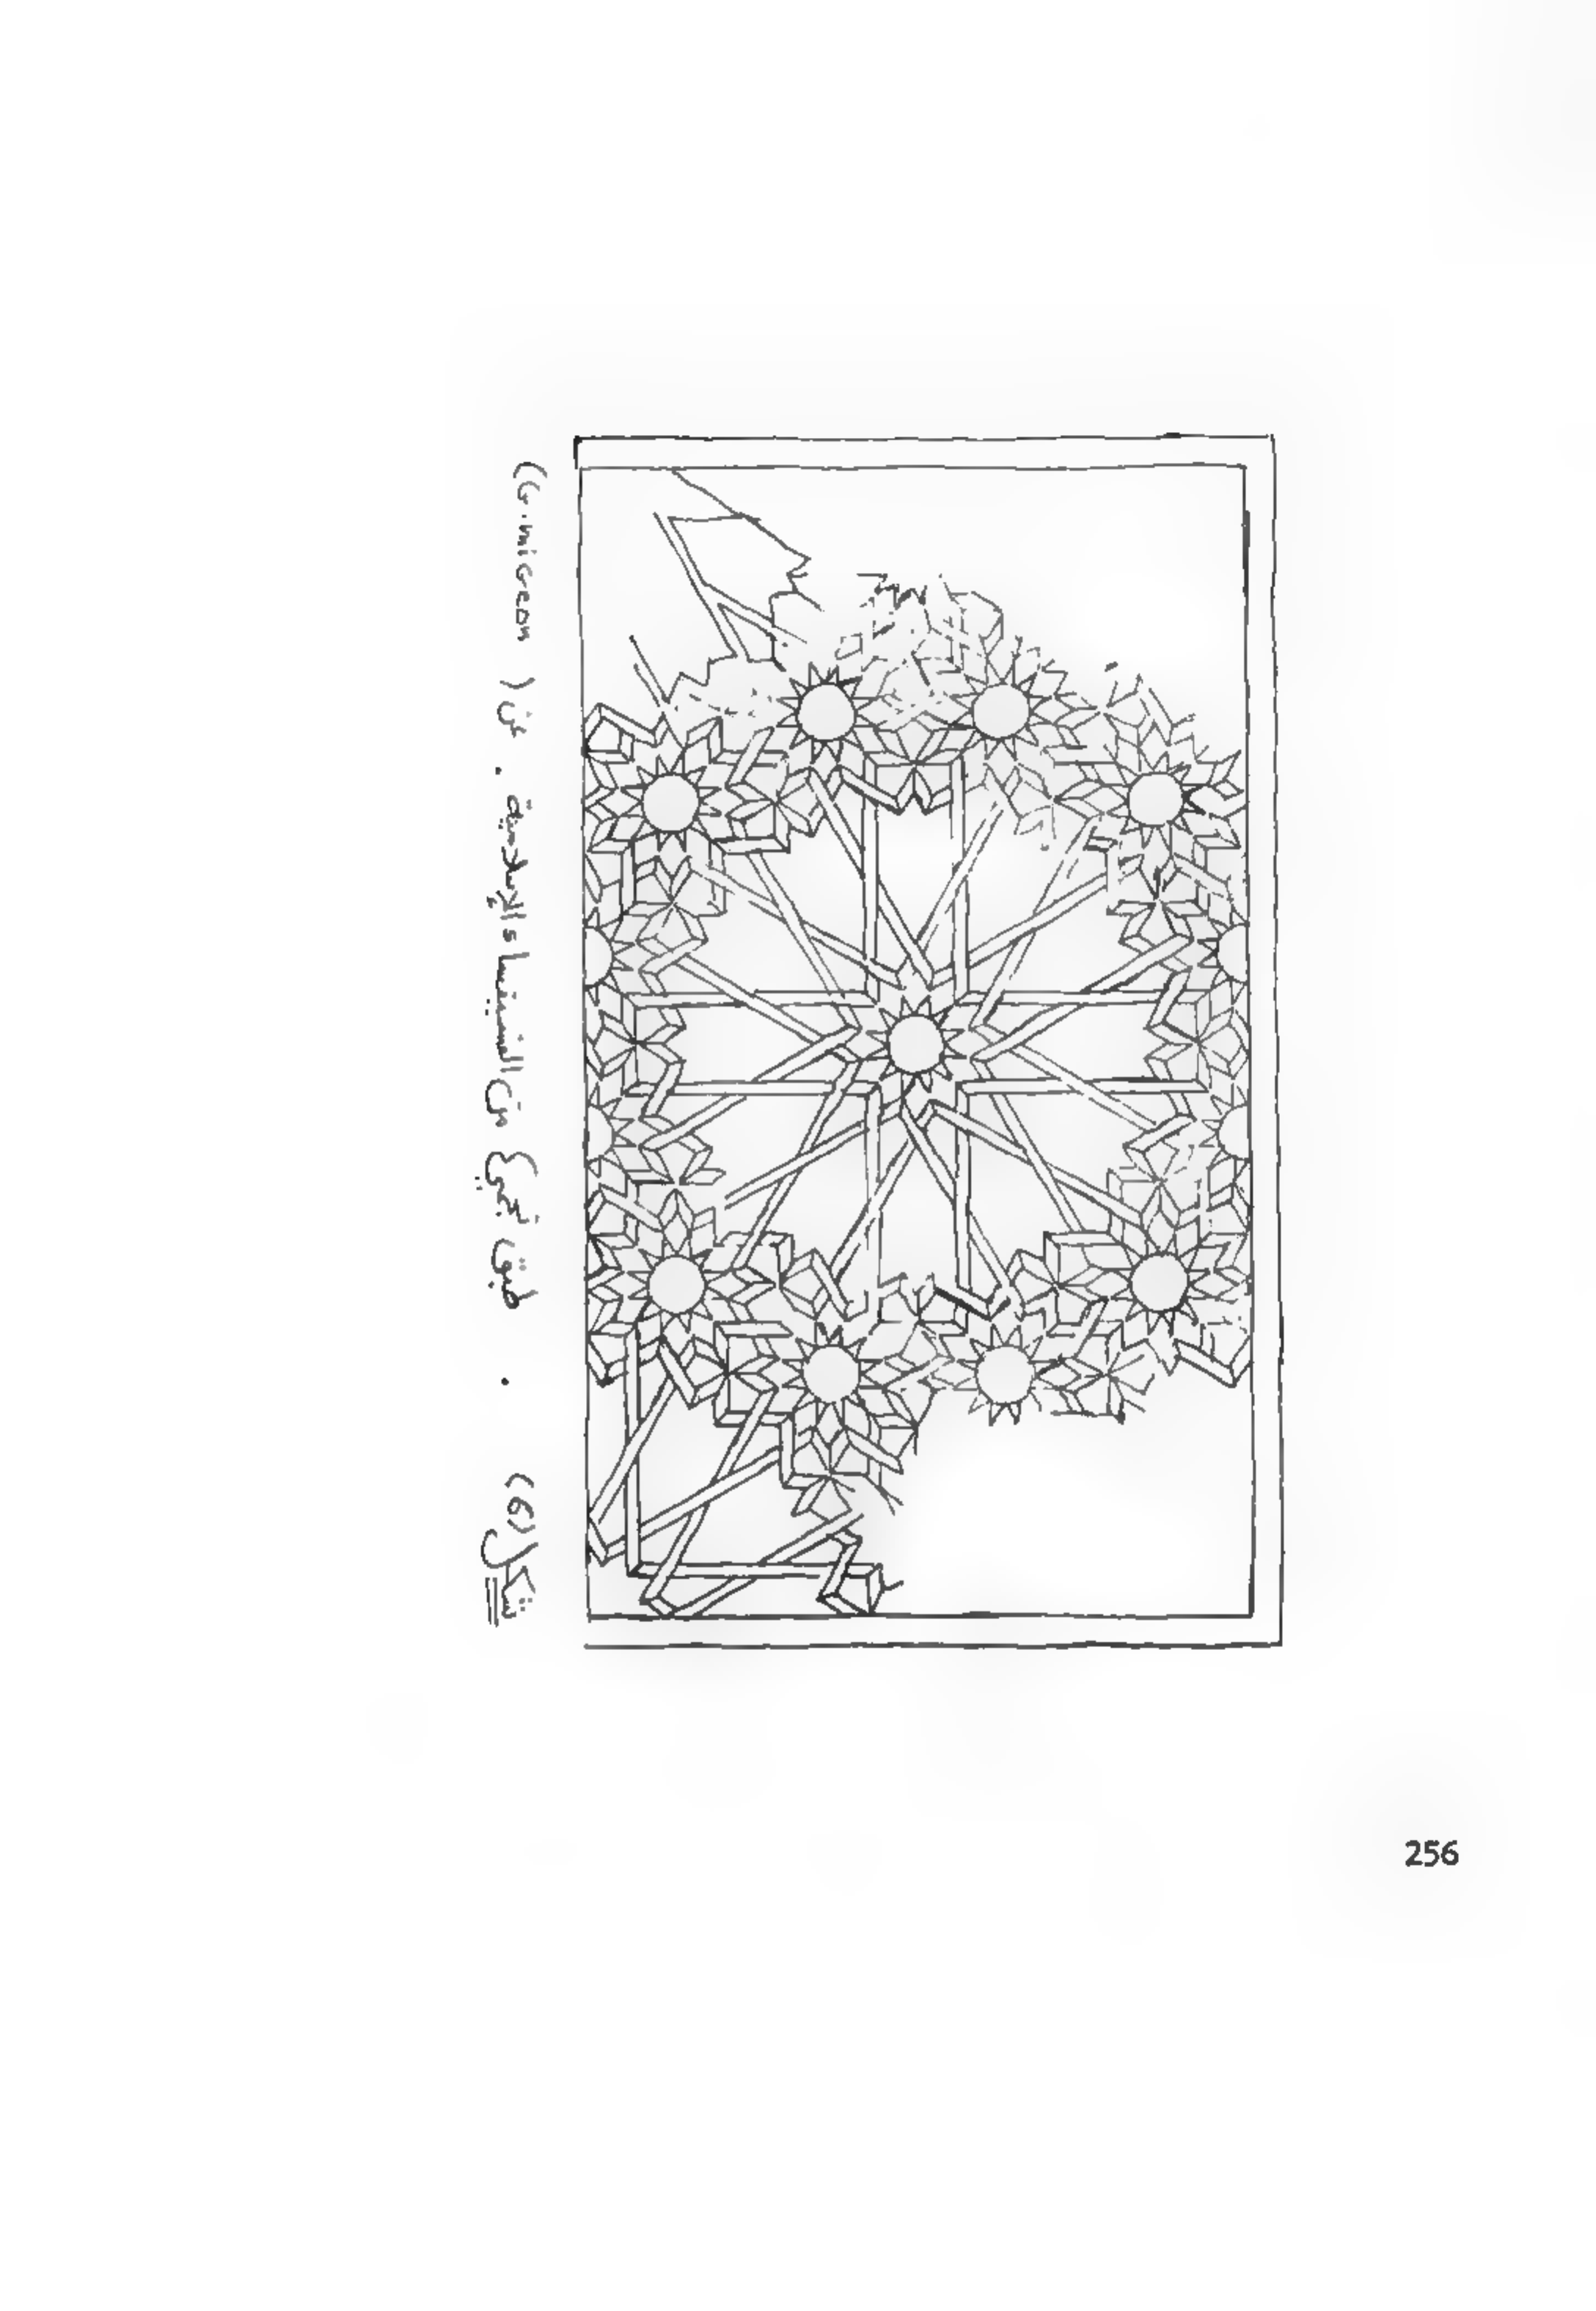 شكل (6) . طبق نجمي من الفسيفساء الإسلامية . عن ( G.migeon )
256